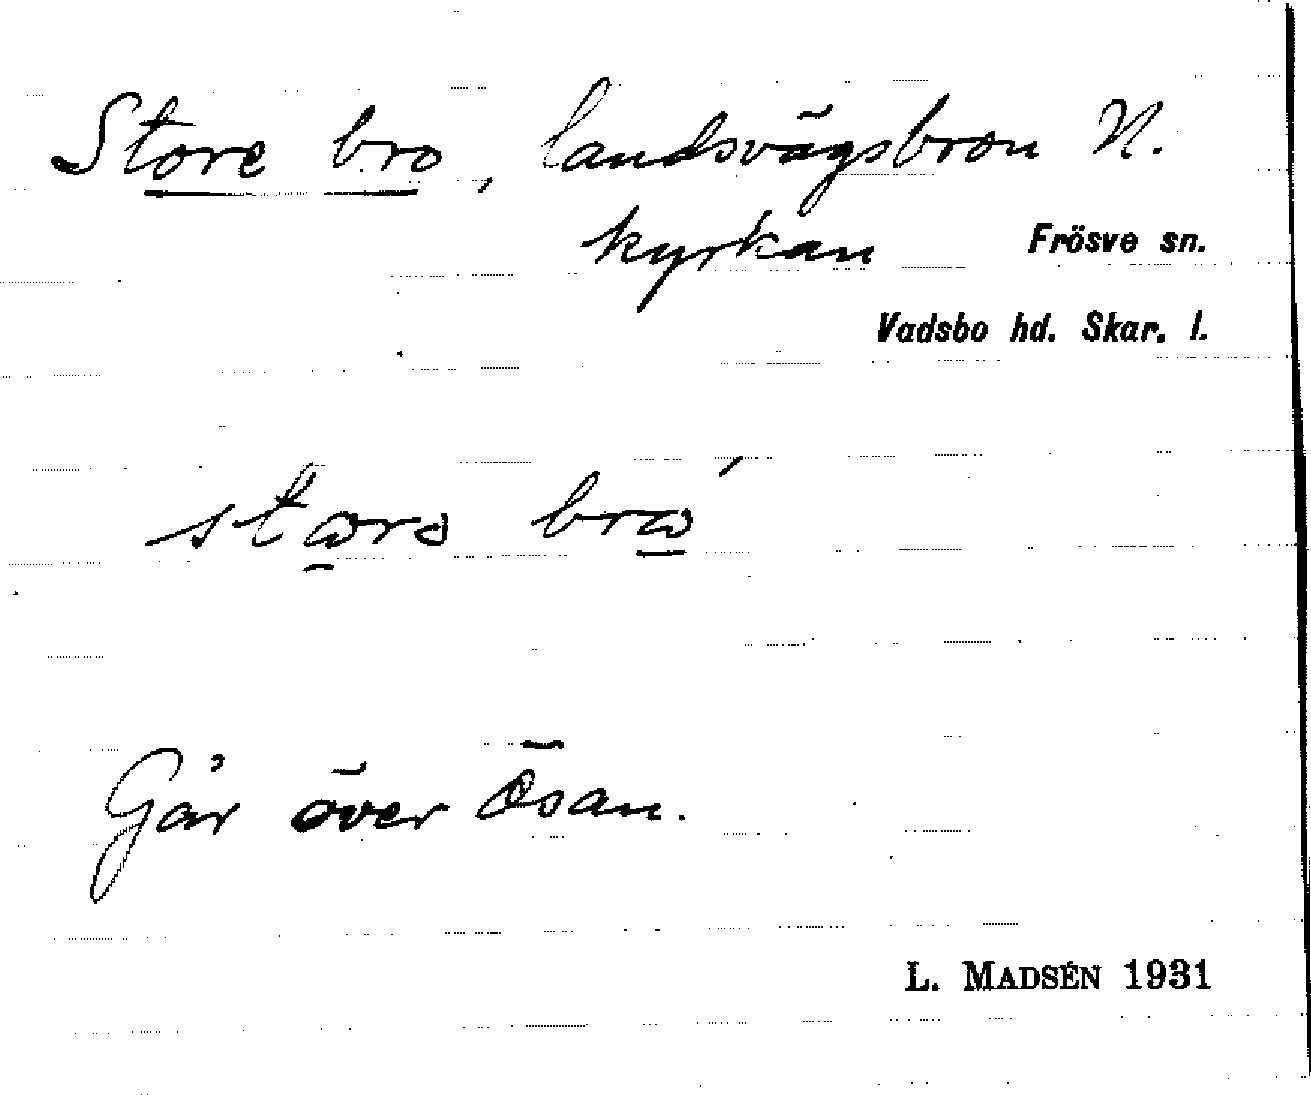 Store bro, landsvägsbron N.
kyrkan
Frösve sn.
Vadsbo hd. Skar. l.
stɷrə brɷ́
Går över Ösan.
L. MADSÉN 1931